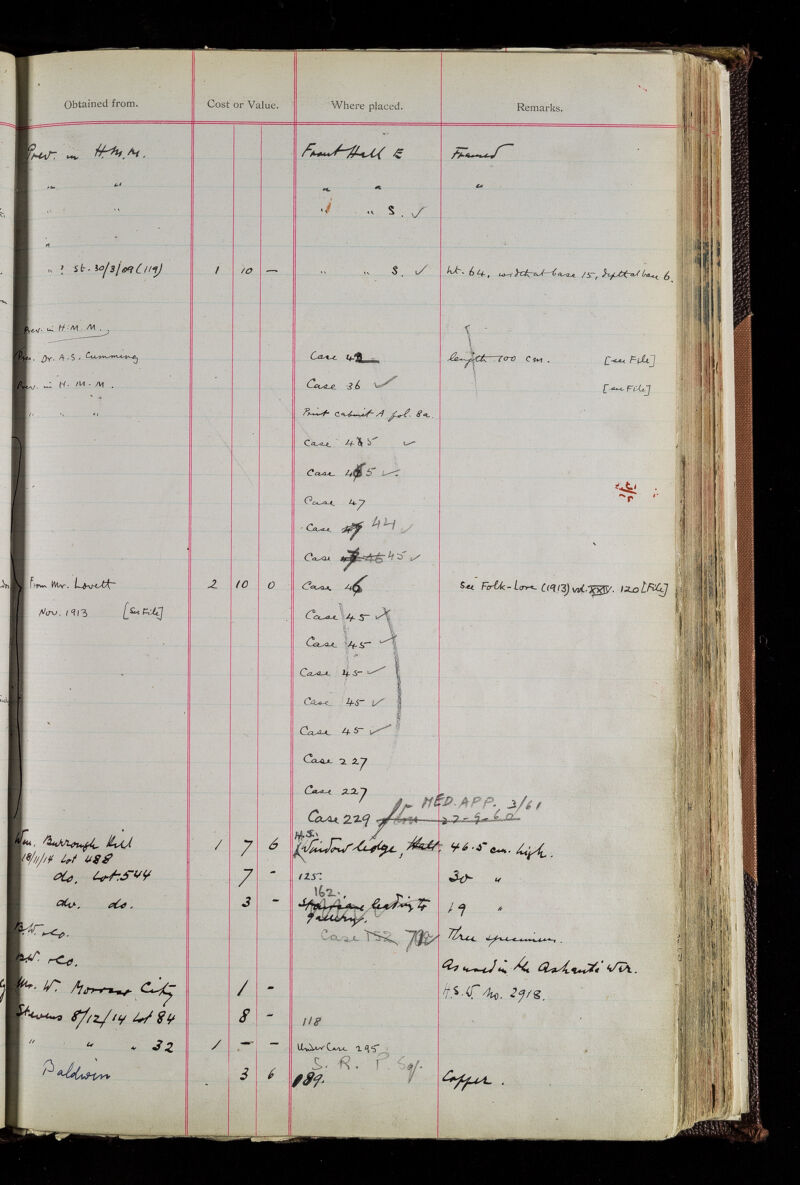 Obtained from. Cost or Value. Where placed. Remarks.
Prev. in H.M.M. Front Hall E Framed
" " " " "
" " " " S. ✓
"
" ? St. 30/3/09 (119) 1 10 — " " S. ✓ ht. 64, width at base 15, depth at base 6.
Prev. in H.M.M.
Pres. Dr. A.S. Cumming Case 42 length 100 cm. [see File]
Prev. in H.M.M. Case 36 ✓ [see File]
" " " Print cabinet A fol. 8a.
Case 45 ✓
Case 45 ✓
Case 47
Case 44 ✓
Case 45 ✓
From Mr. Lovett 2 10 0 Case 46 See Folk-Lore (1913) vol. XXIV. 120 [File]
Nov. 1913 [See File] Case 45 ✓
Case 45 ✓
Case 45 ✓
Case 45 ✓
Case 45 ✓
Case 227
Case 227
MED. APP. 3/61
Case 229 22-9-60
H.S.
Wm. Burrough Hill 1 7 6 Window ledge, Hall. 46.5 cm. high.
18/11/14 Lot 488
do. Lot 544 7 - 125. 30 "
162.
do. do. 3 - Staircase leading to gallery. 19 "
B.W. & Co. Case 152 Three specimens.
B.W. & Co. As used in the Ashanti War.
Mr. W. Morrow City 1 - H.S. No. 2918.
Stevens 8/12/14 Lot 84 8 - 118
" " " 32 1 — — Under Case 295
S. R. P.
Baldwin 3 6 89. Copper.